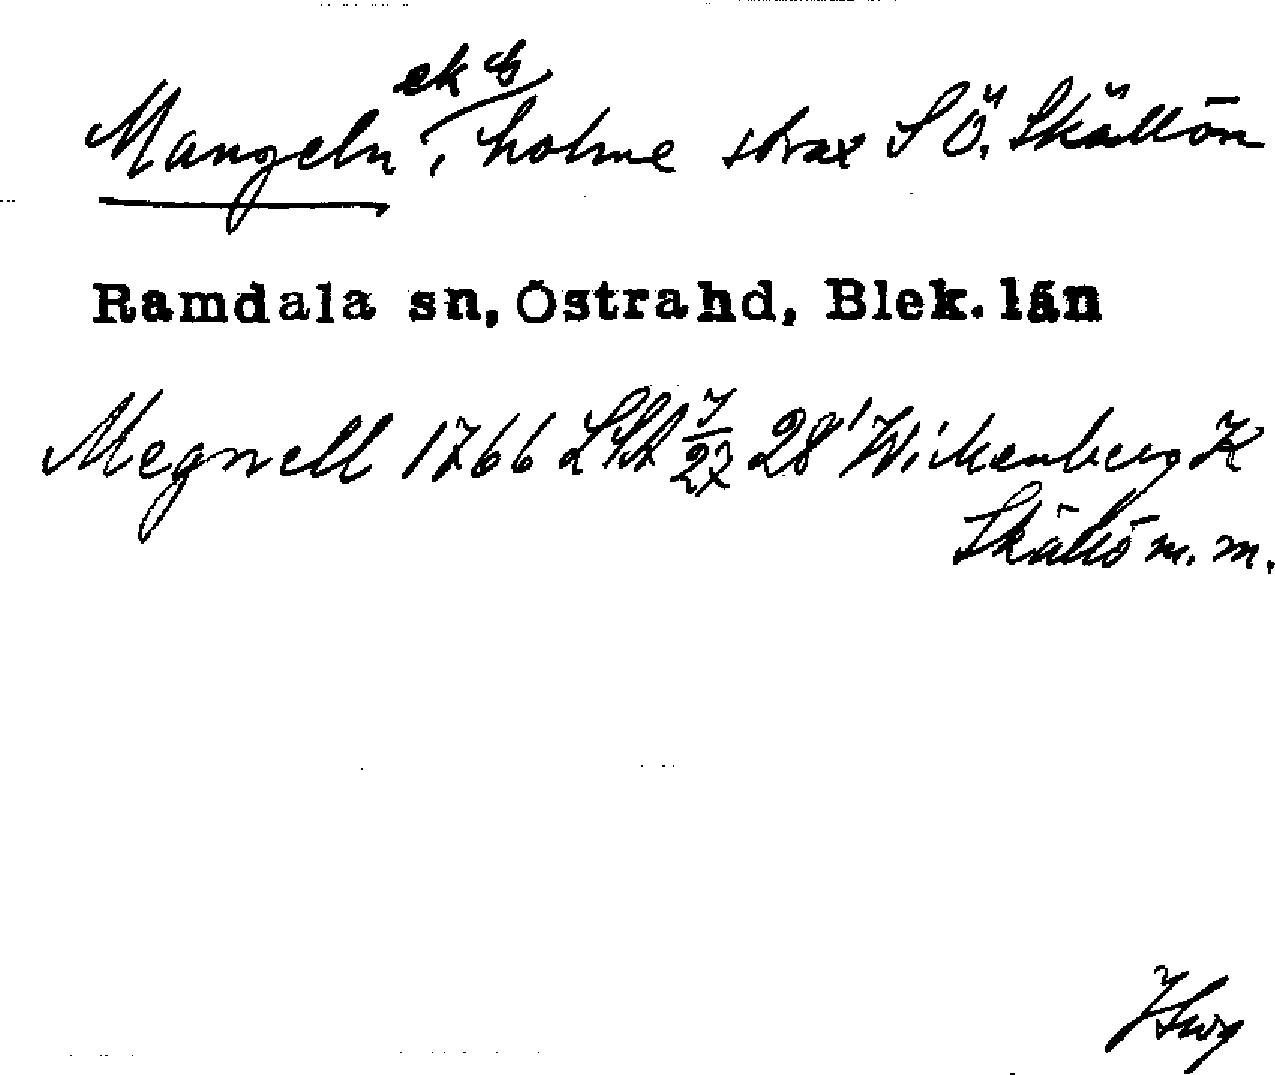 ek b
Mangeln, holme strax S Ö. Skällön
Ramdala sn, Ostrahd, Blek. län
Megnell 1766 LSA 7/27 28' Wickenberg K
Skällö m. m.